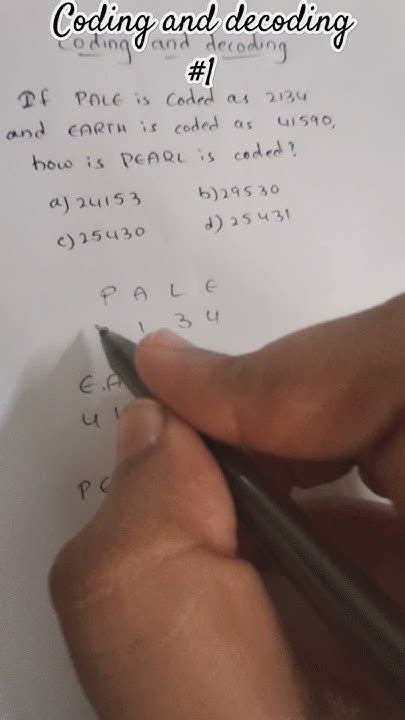 Coding and decoding
#1
Coding and decoding
If PALE is coded as 2134
and EARTH is coded as 41590,
how is PEARL is coded?
a) 24153 b) 29530
c) 25430 d) 25431
P A L E
1 3 4
E.A
4 1
P E